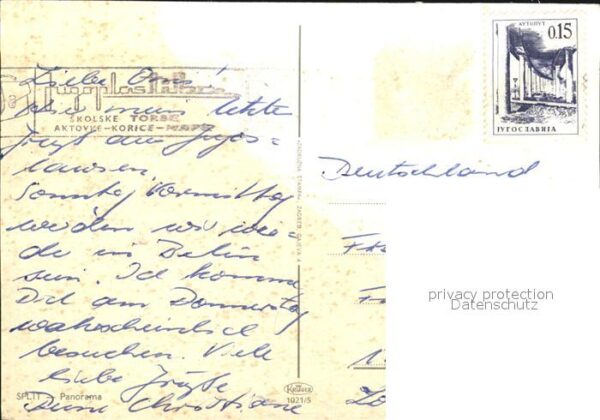 Liebe Omi!
Jugoplastika
letzte
ŠKOLSKE TORBE
AKTOVKE-KORICE-MAPE
Jugos-
lawien.
Sonntag Vormittag
werden wir wie-
de in Berlin
sein. Ich komme
Dich am Donnerstag
wahrscheinlich
besuchen. Viele
liebe Grüße
Deine Christiane
SPLIT — Panorama
1021/5
АУТОПУТ
0.15
ЈУГОСЛАВИЈА
Deutschland
privacy protection
Datenschutz